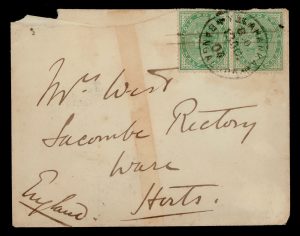 Mrs West
Sacombe Rectory
Ware
Herts.
England.